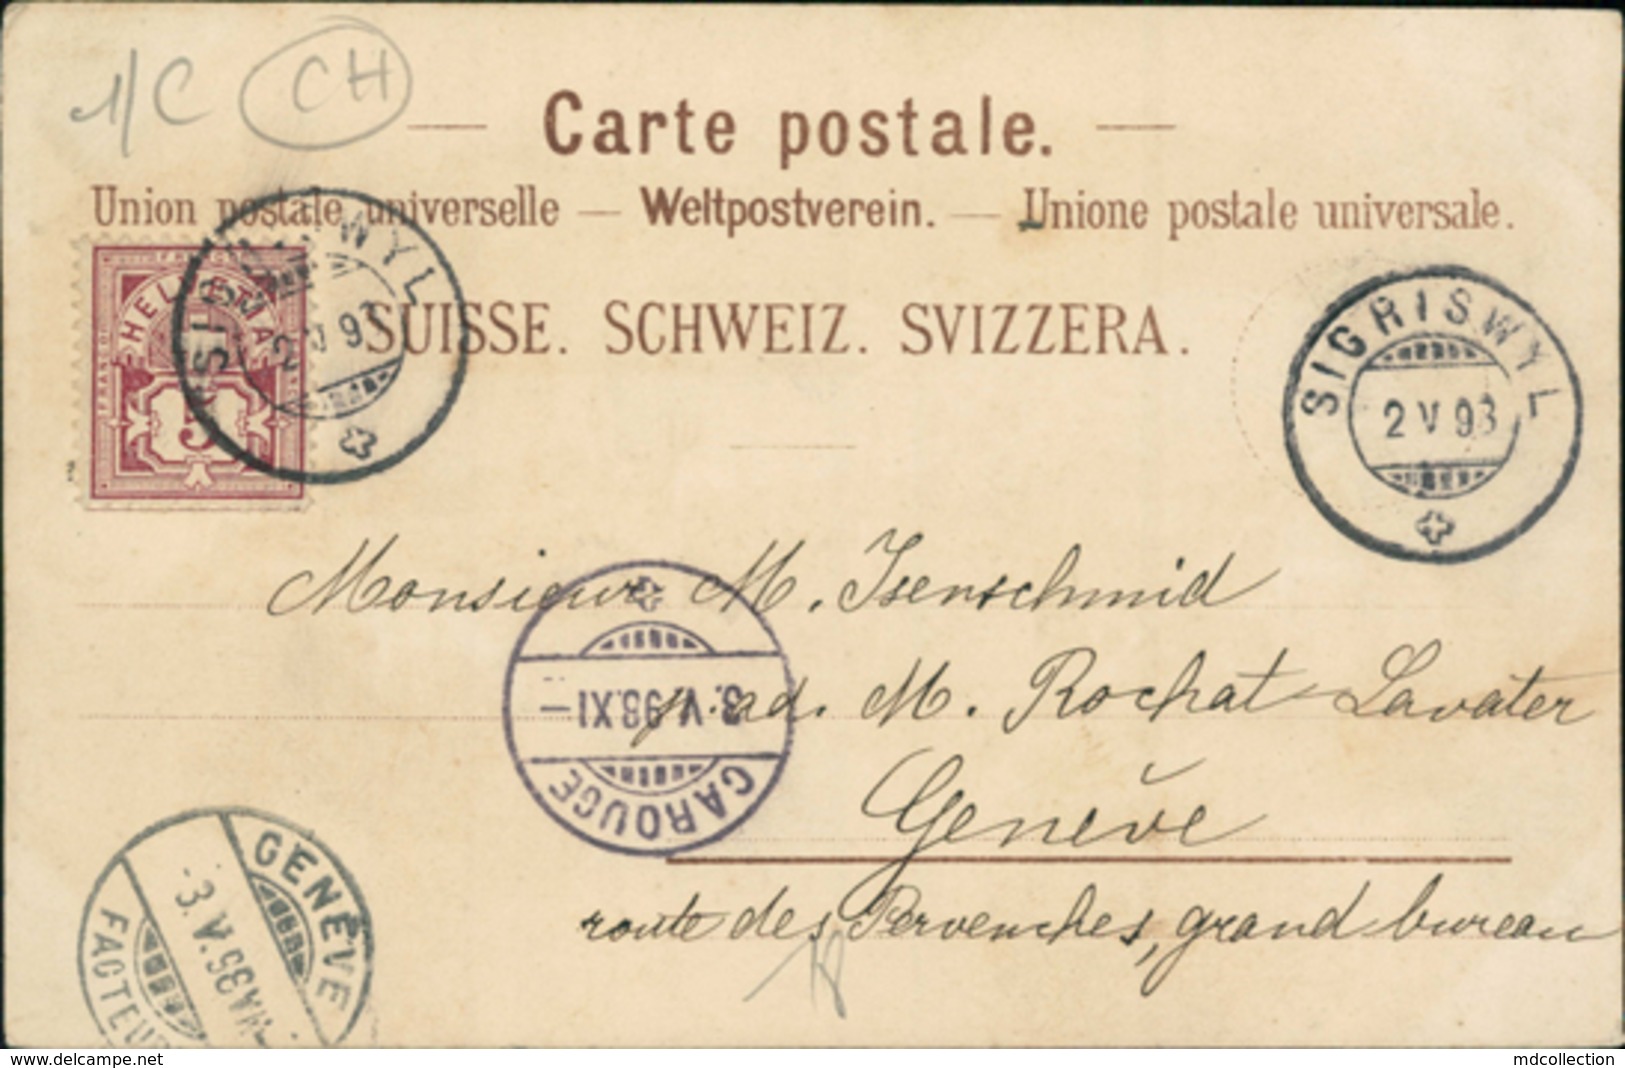 1/C CH
— Carte postale. —
Union postale universelle — Weltpostverein. — Unione postale universale.
SUISSE. SCHWEIZ. SVIZZERA.
FRANCO
HELVETIA
5
SIGRISWYL
2 V 98
SIGRISWYL
2 V 98
Monsieur M. Isenschmid
p. ad. M. Rochat Lavater
Genève
route des Pervenches, grand bureau
CAROUGE
3. V. 98. XI –
GENÈVE
FACTEU
delcampe.net
mdcollection